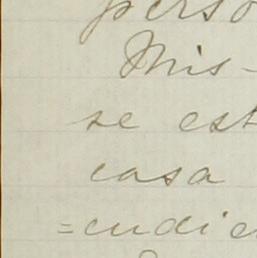 perso
Mis-
se est
casa
=cudie